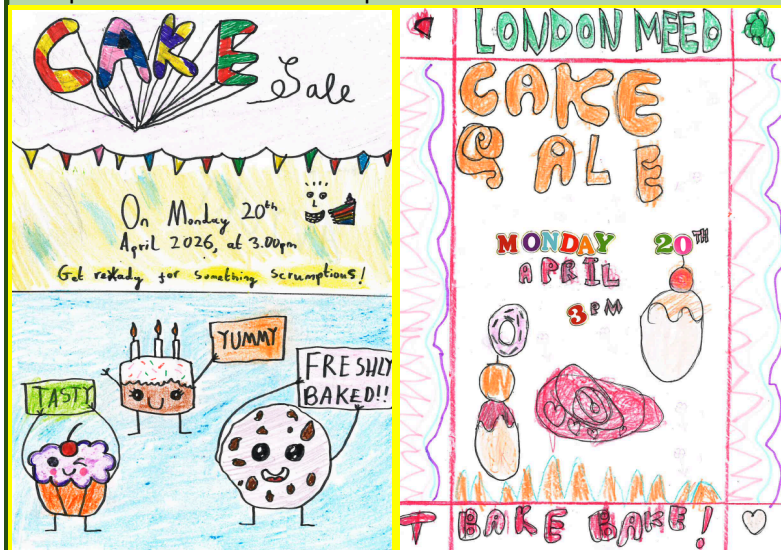 CAKE Sale
On Monday 20th
April 2026, at 3.00pm
Get ready for something scrumptious!
YUMMY
FRESHLY
BAKED!!
TASTY
LONDON MEED
CAKE
SALE
MONDAY 20TH
APRIL
3PM
BAKE BAKE!